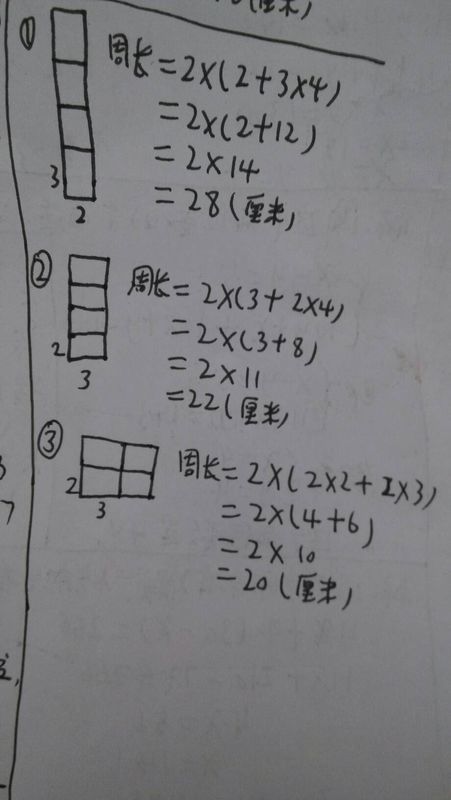 (厘米)
① 周长=2×(2+3×4)
=2×(2+12)
=2×14
=28(厘米)
3
2
② 周长=2×(3+2×4)
=2×(3+8)
=2×11
=22(厘米)
2
3
③ 周长=2×(2×2+2×3)
=2×(4+6)
=2×10
=20(厘米)
2
3
7